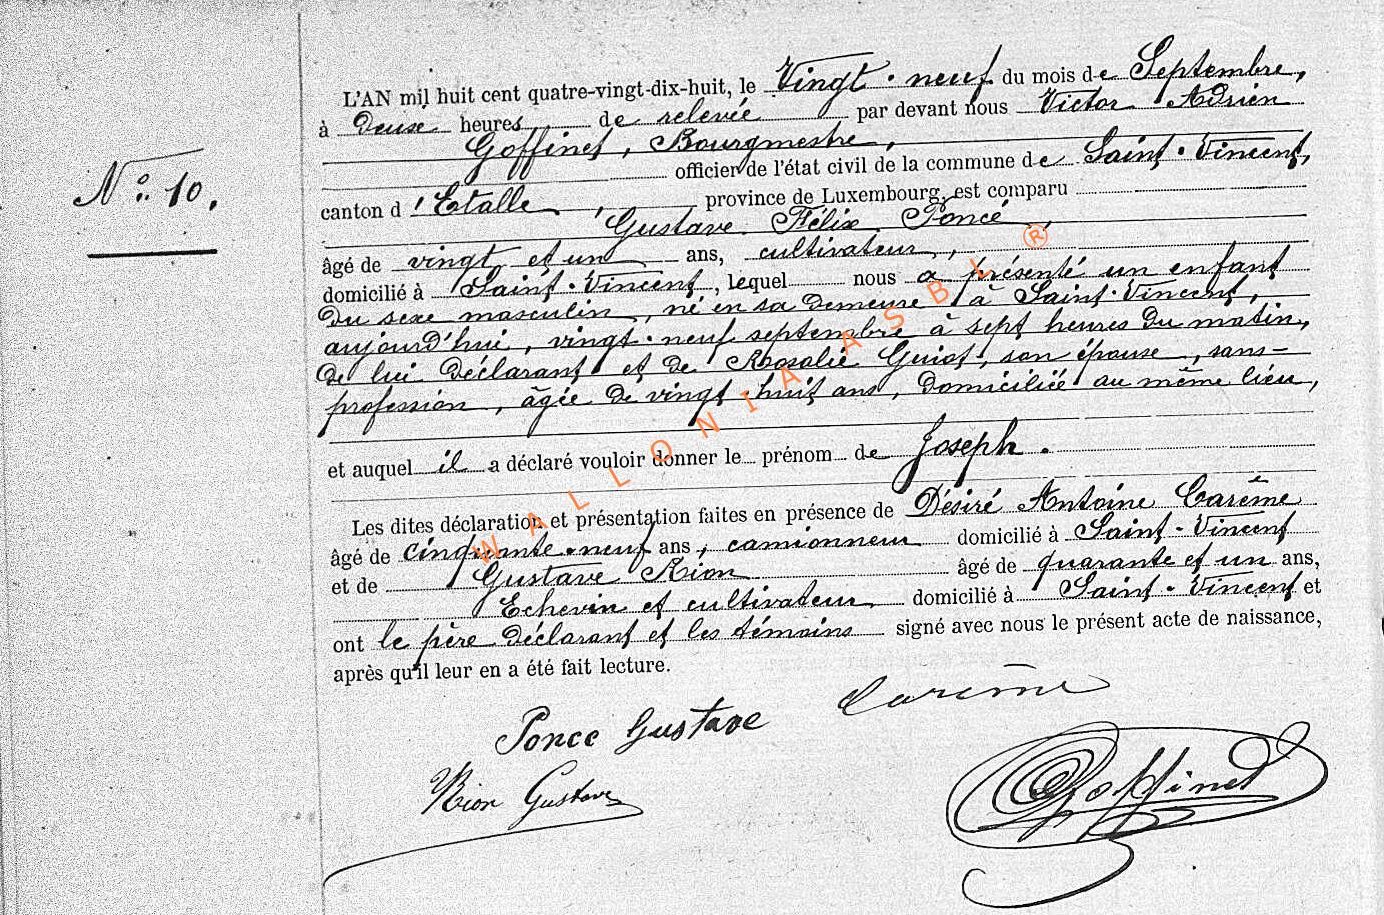 L'AN mil huit cent quatre-vingt-dix-huit, le Vingt-neuf du mois de Septembre,
à deux heures de relevée par devant nous Victor Adrien
Goffinet, Bourgmestre,
officier de l'état civil de la commune de Saint-Vincent,
N° 10.
canton d'Etalle, province de Luxembourg, est comparu
Gustave Félix Poncé,
âgé de vingt et un ans, cultivateur,
domicilié à Saint-Vincent, lequel nous a présenté un enfant
du sexe masculin, né en sa demeure à Saint-Vincent,
aujourd'hui, vingt-neuf septembre à sept heures du matin,
de lui déclarant et de Rosalie Guiot, son épouse, sans-
profession, âgée de vingt-huit ans, domiciliée au même lieu,
et auquel il a déclaré vouloir donner le prénom de Joseph.
Les dites déclaration et présentation faites en présence de Désiré Antoine Carême
âgé de cinquante-neuf ans, camionneur domicilié à Saint-Vincent
et de Gustave Rion âgé de quarante et un ans,
Echevin et cultivateur domicilié à Saint-Vincent et
ont le père déclarant et les témoins signé avec nous le présent acte de naissance,
après qu'il leur en a été fait lecture.
Carême
Ponce Gustave
Rion Gustave
Goffinet
WALLONIA ASBL ®